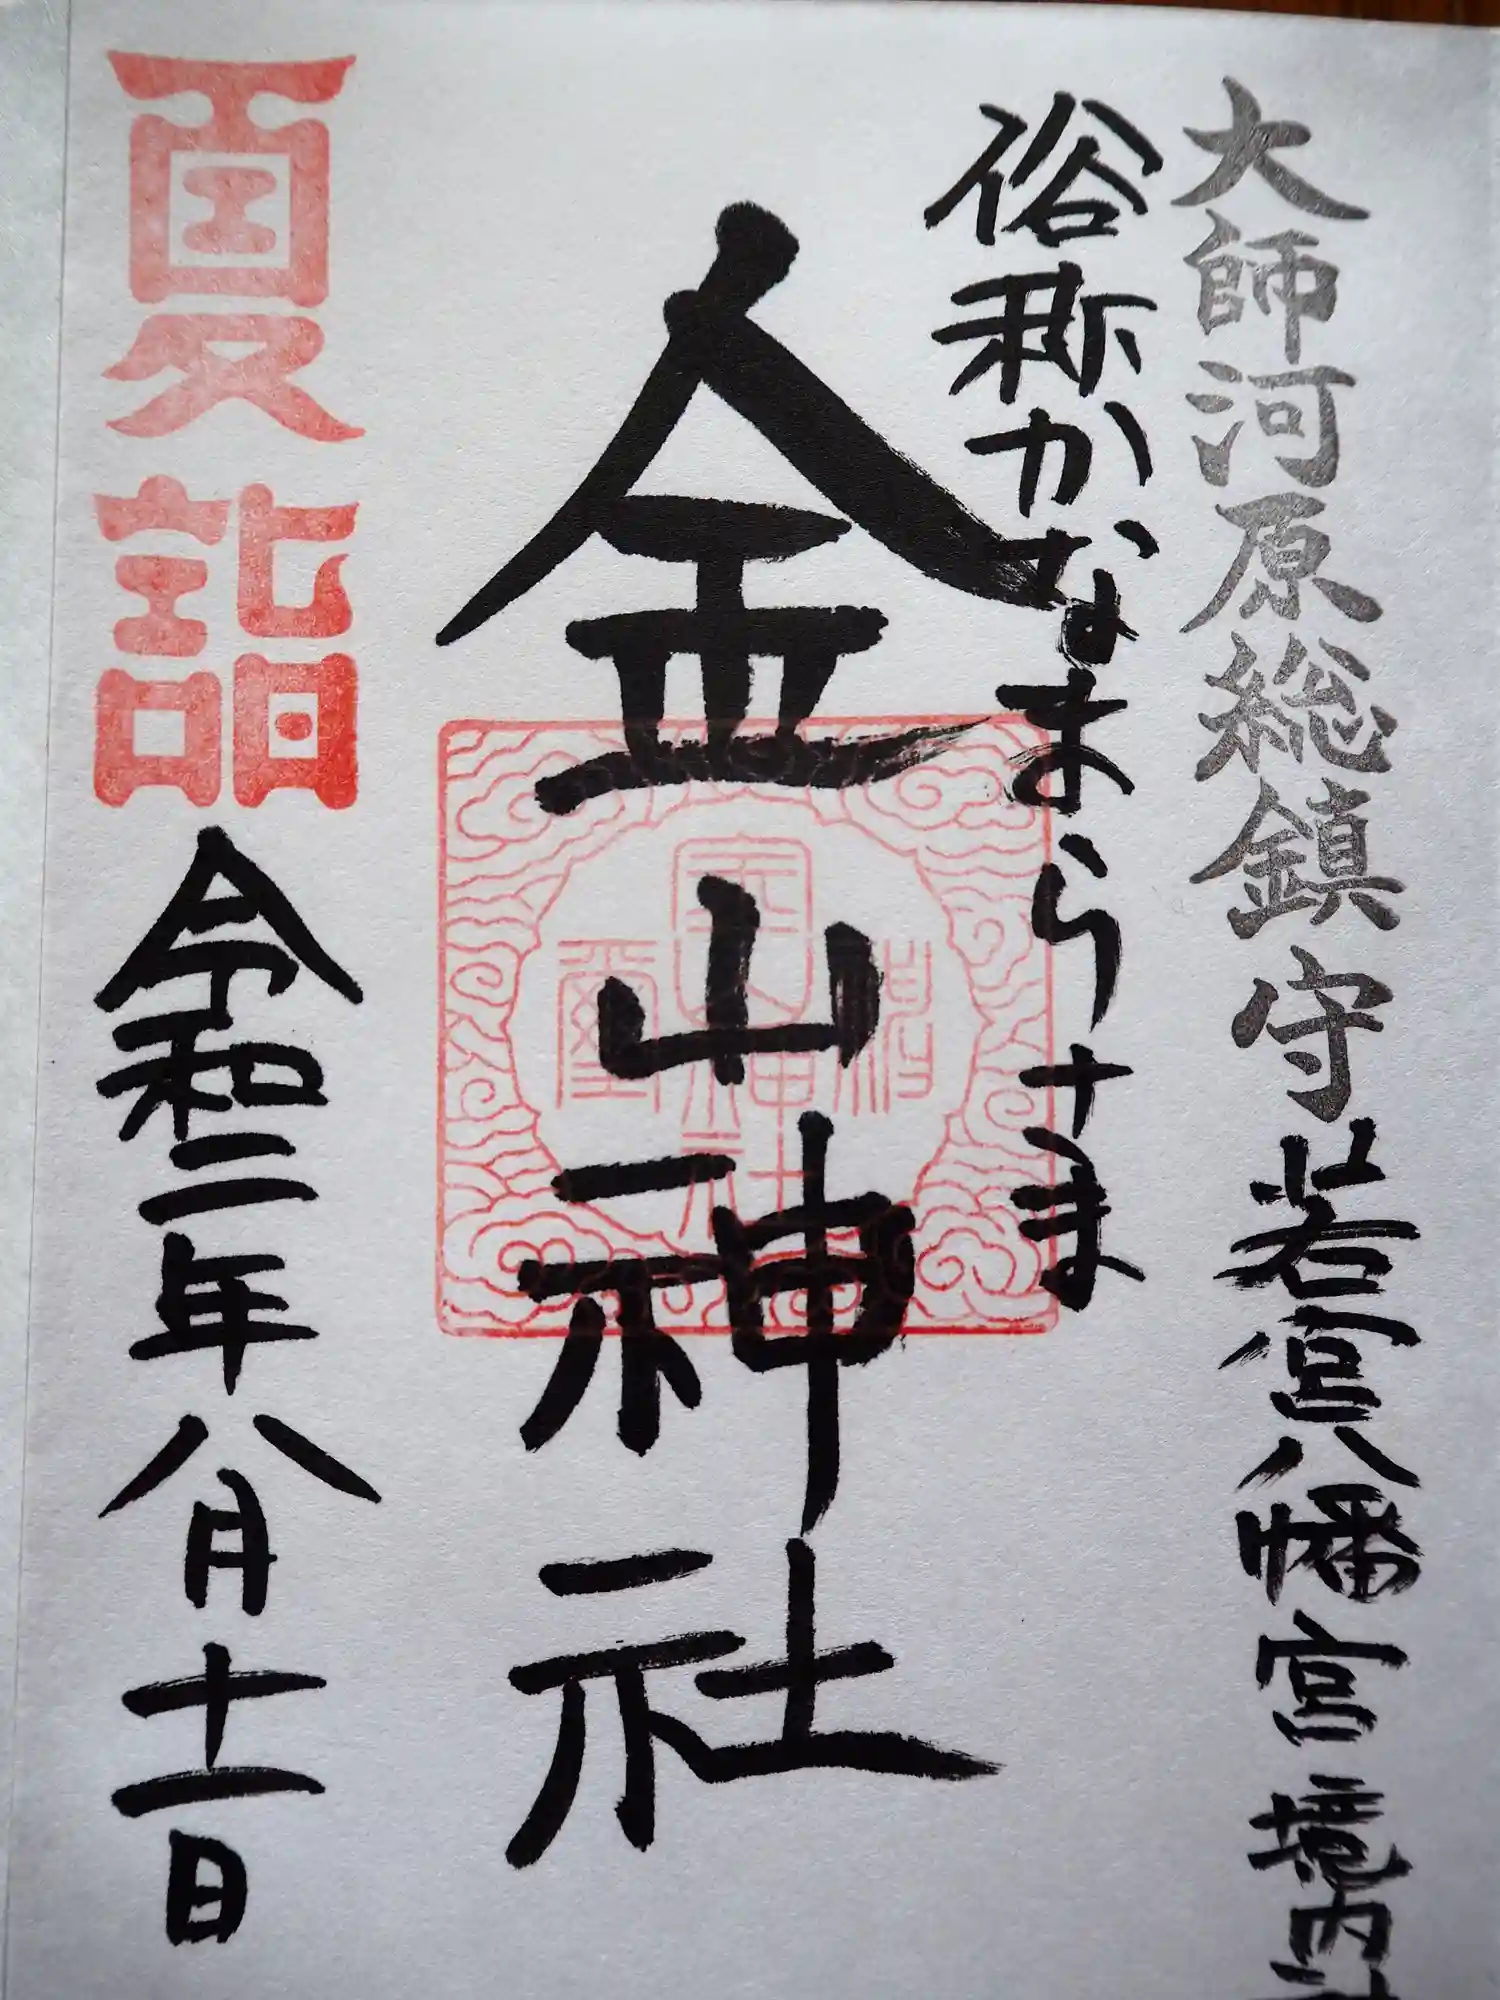 大師河原総鎮守若宮八幡宮境内社
俗称かなまらさま
金山神社
夏詣
令和二年八月十一日